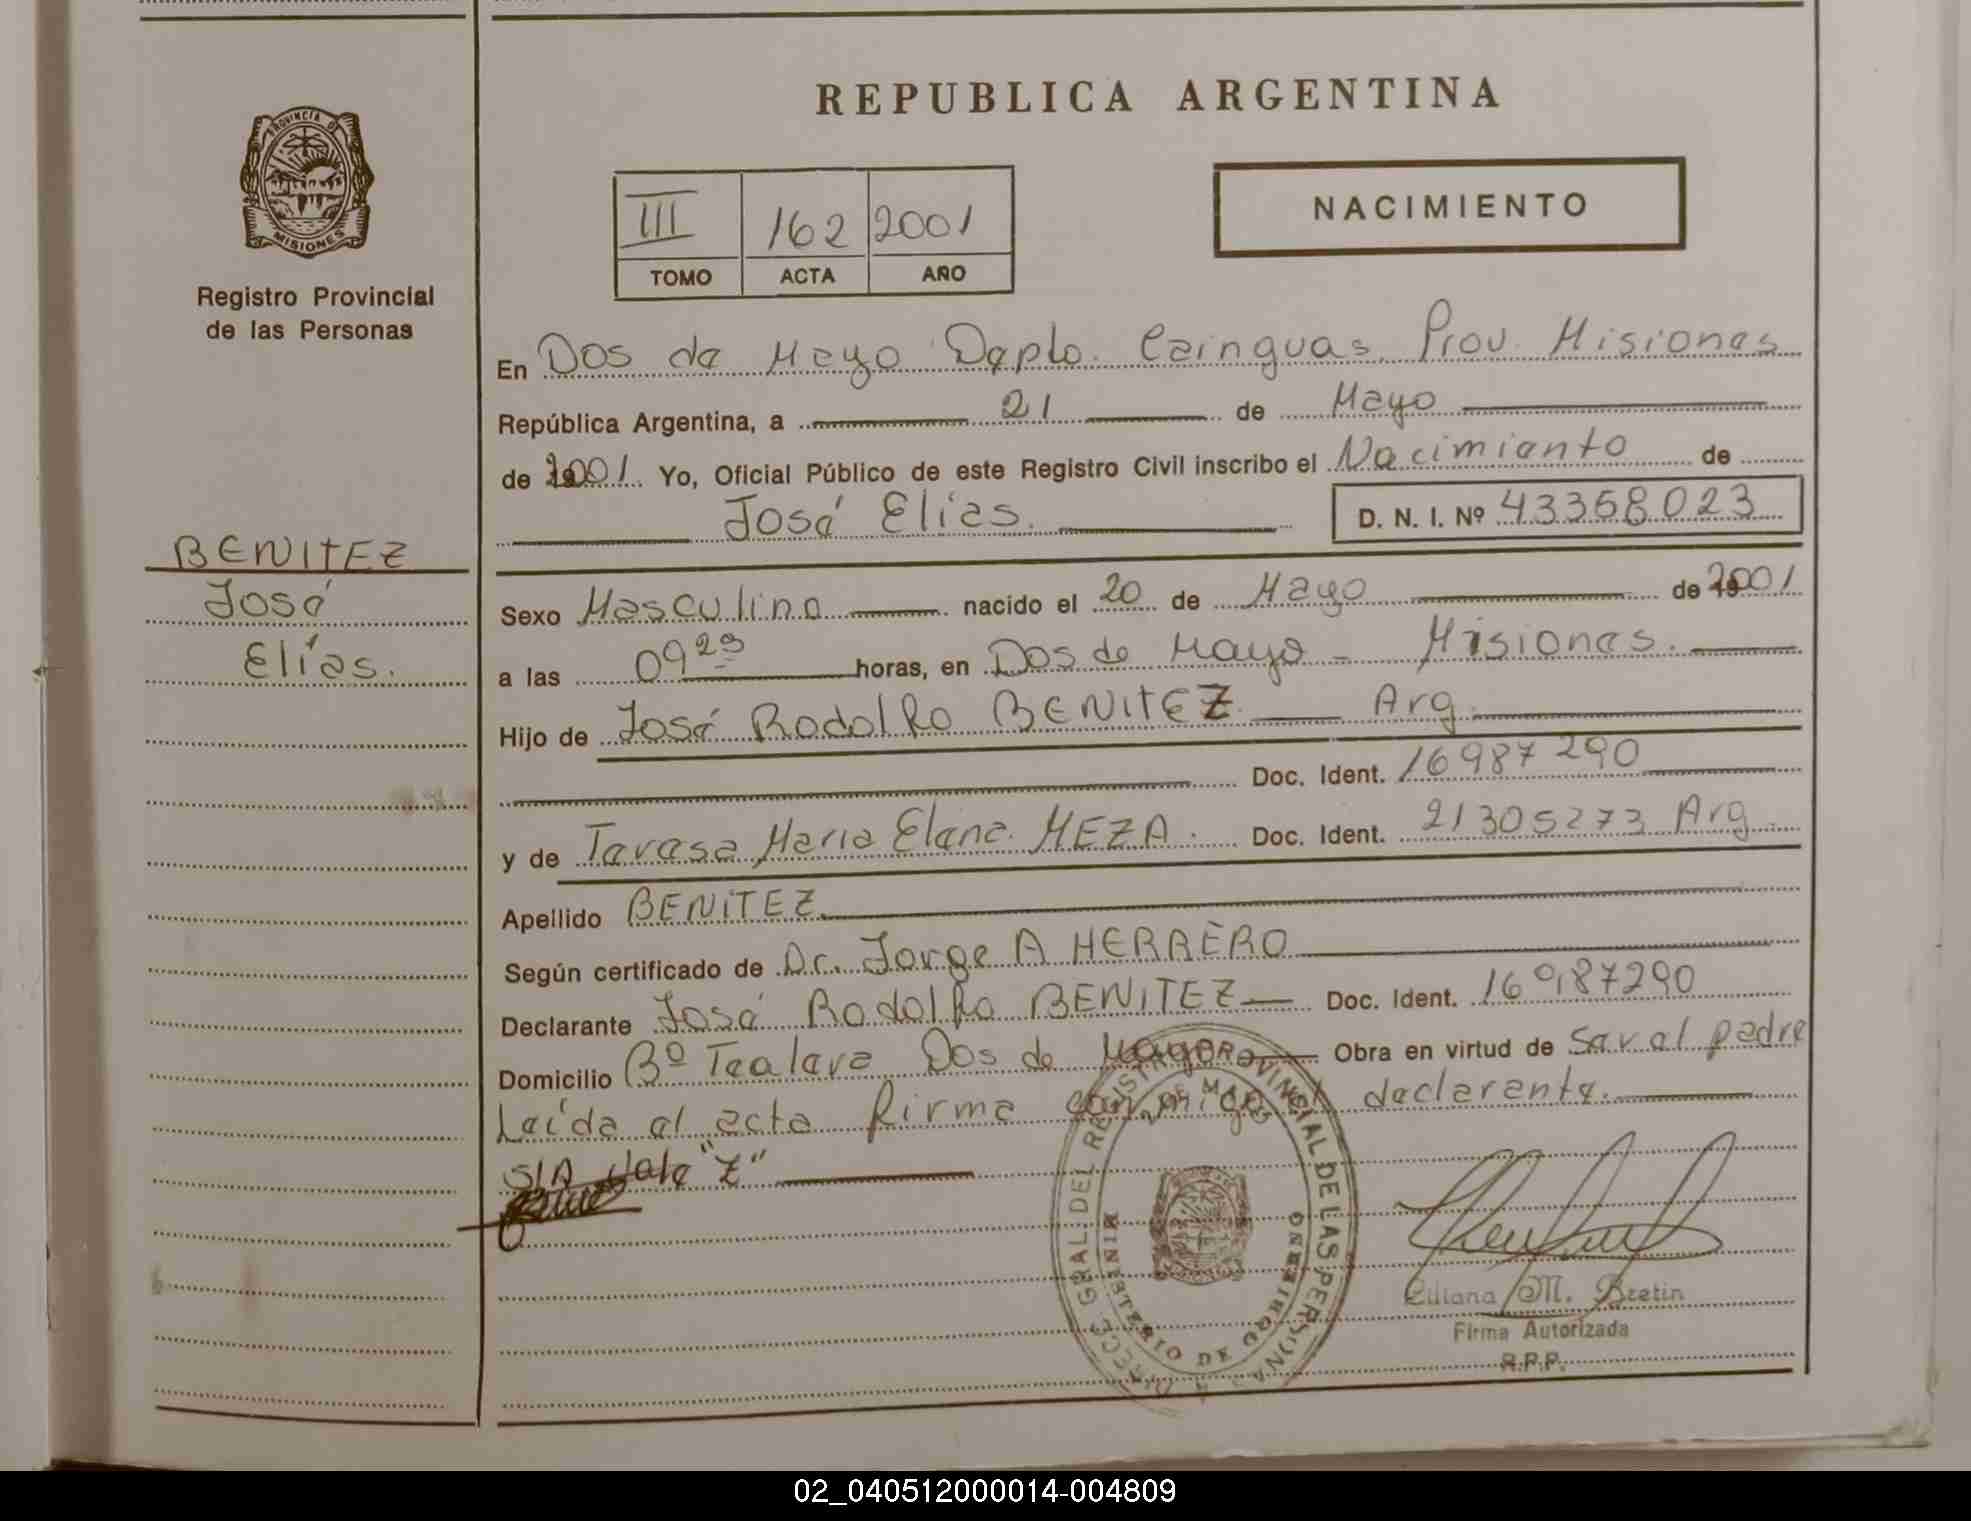 REPUBLICA ARGENTINA
PROVINCIA DE
MISIONES
Registro Provincial
de las Personas
III 162 2001
TOMO ACTA AÑO
NACIMIENTO
En Dos de Mayo Depto. Cainguas Prov. Misiones
República Argentina, a 21 de Mayo
de 2001. Yo, Oficial Público de este Registro Civil inscribo el Nacimiento de
José Elías. D. N. I. Nº 43358023
BENITEZ
José
Elías.
Sexo Masculino nacido el 20 de Mayo de 2001
a las 09 25 horas, en Dos de Mayo - Misiones.
Hijo de José Rodolfo BENITEZ Arg.
Doc. Ident. 16987290
y de Teresa Maria Elena MEZA. Doc. Ident. 21305273 Arg.
Apellido BENITEZ
Según certificado de Dr. Jorge A HERRERO
Declarante José Rodolfo BENITEZ Doc. Ident. 16987290
Domicilio Bº Dos de Mayo Obra en virtud de ser el padre
Leída el acta firma conmigo el declarante.
S/A Vale "Z"
DIRECC. GRAL. DEL REGISTRO PROVINCIAL DE LAS PERSONAS
MINISTERIO DE GOBIERNO
Liliana M. Bretin
Firma Autorizada
R.P.P.
02_040512000014-004809